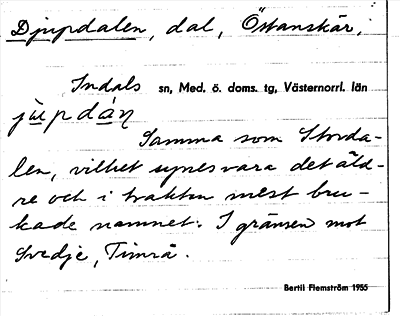 Djupdalen, dal, Östanskär,
Indals sn, Med. ö. doms. tg, Västernorrl. län
jùpdàɳ
Samma som Storda-
len, vilket synes vara det äld-
re och i trakten mest bru-
kade namnet. I gränsen mot
Svedje, Timrå.
Bertil Flemström 1955